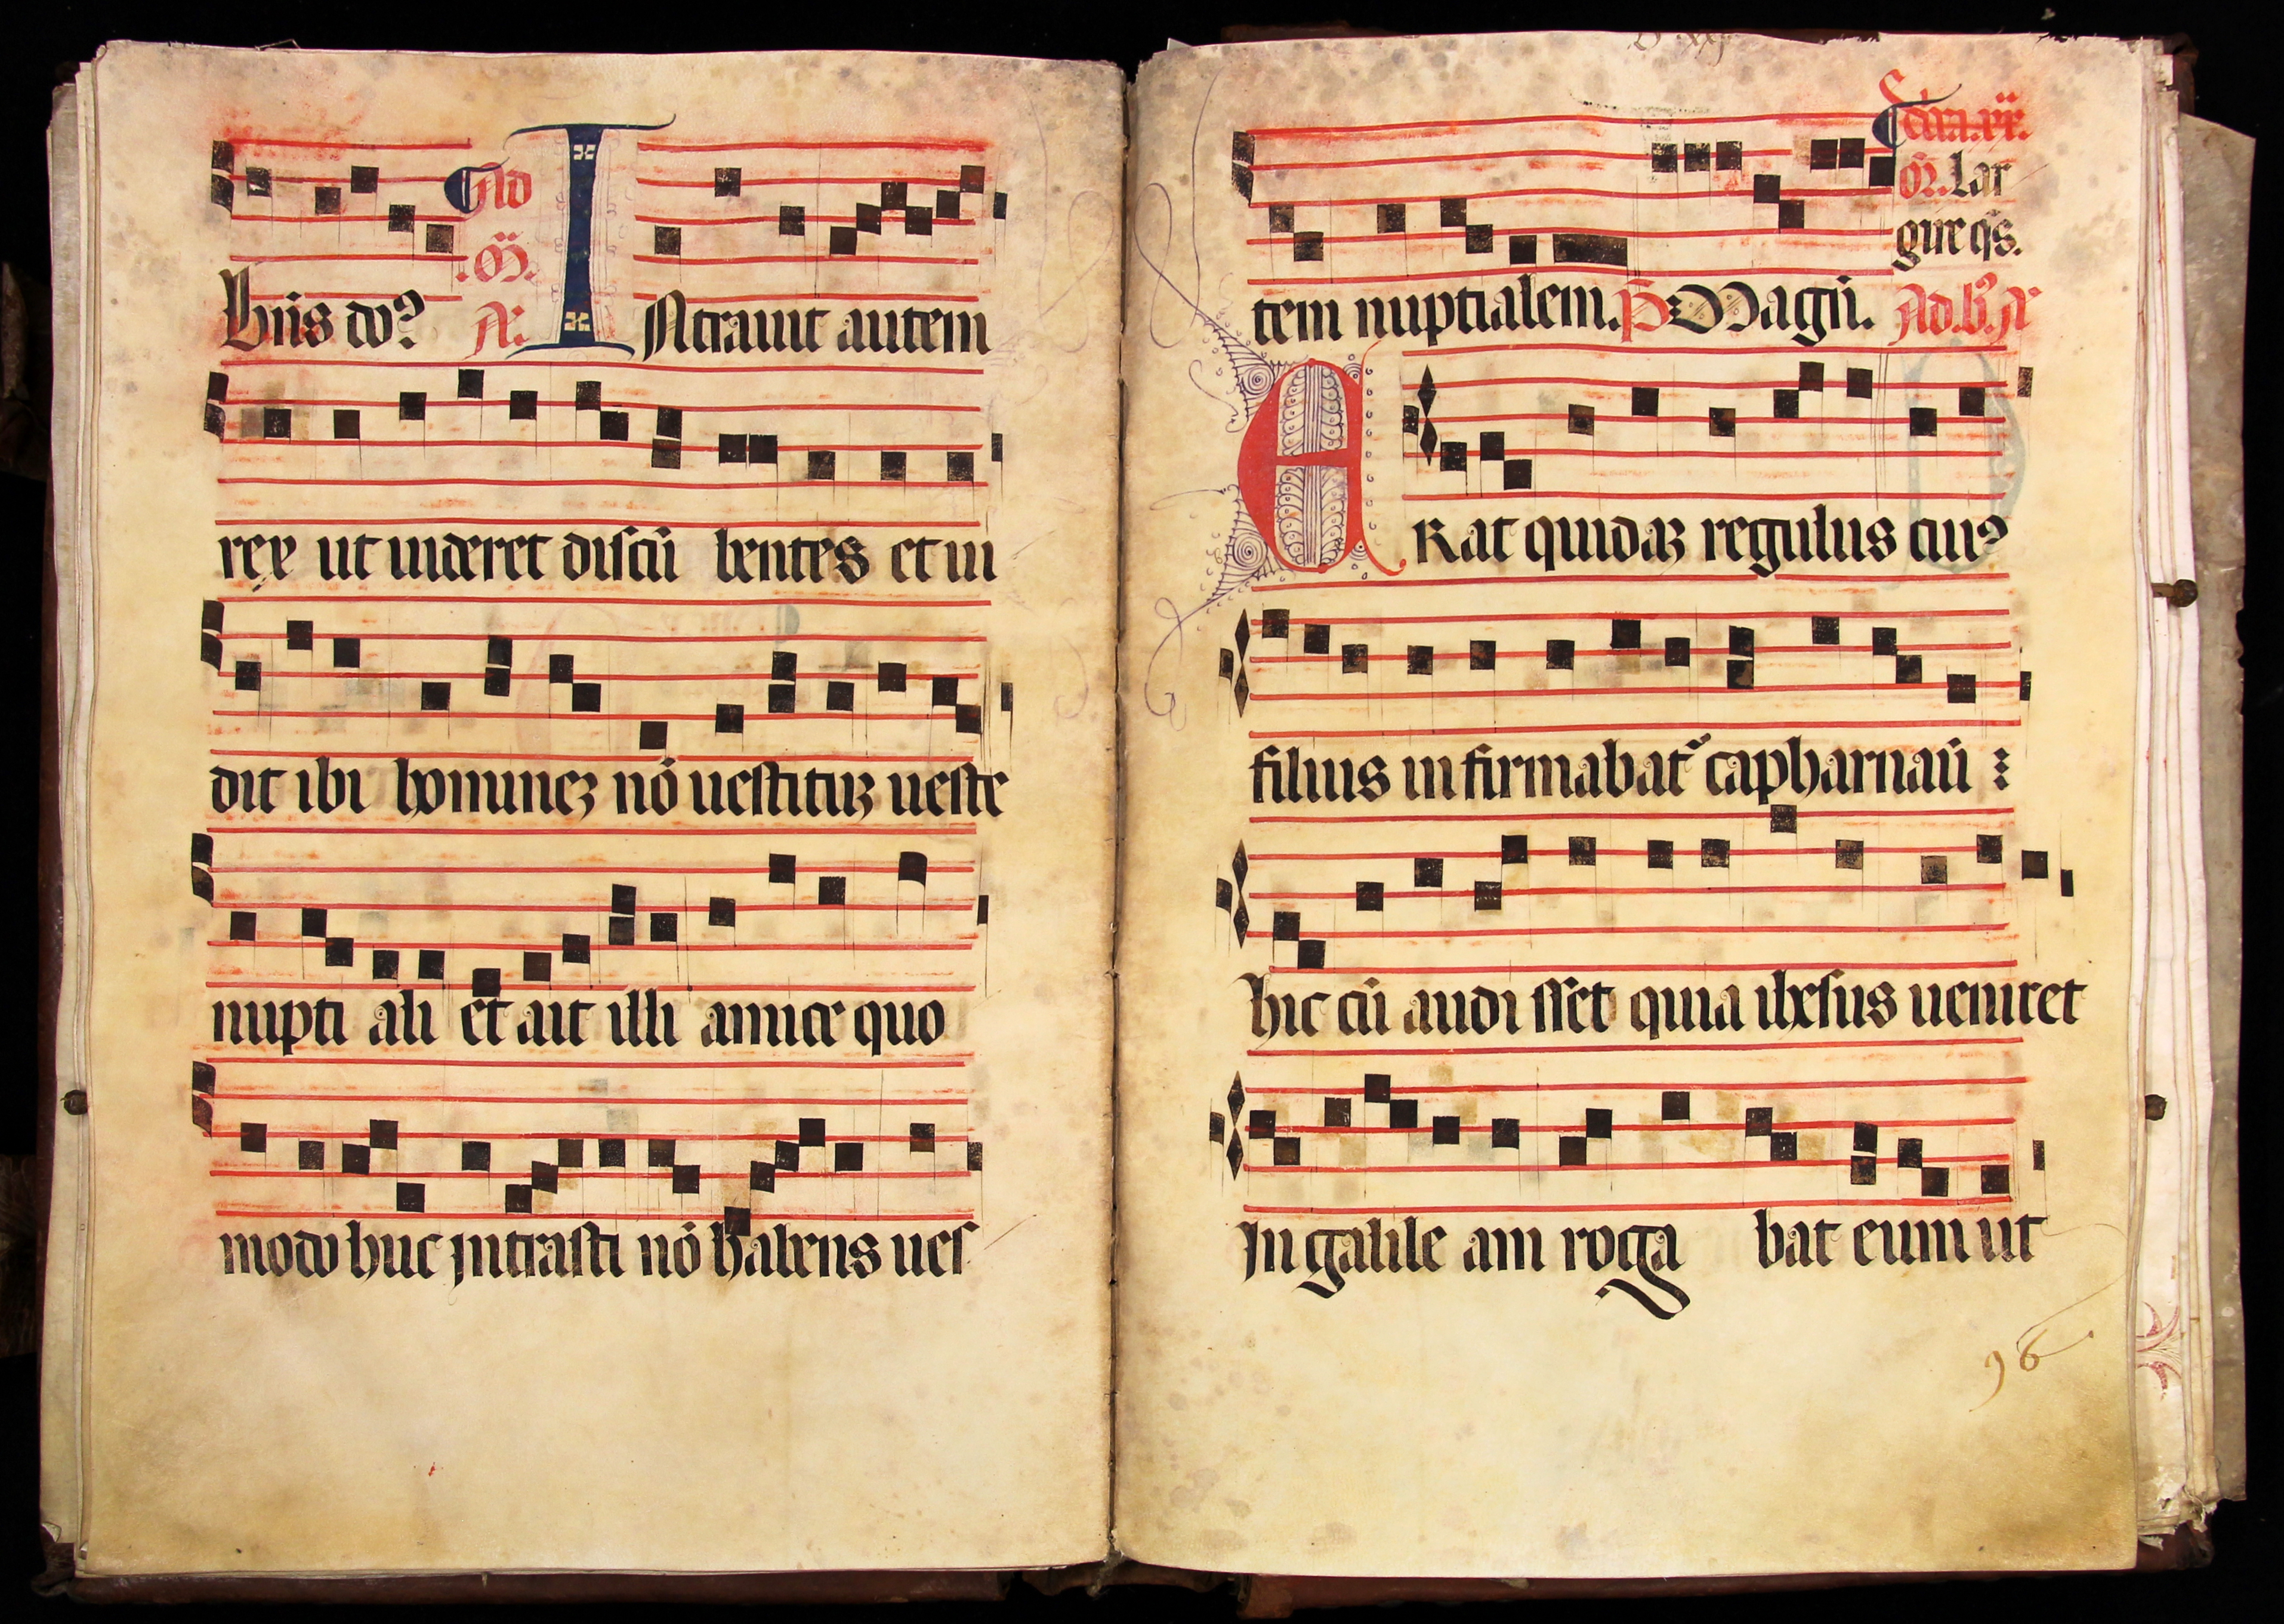 Ad
.M̄.
buis do? A.
INtrauit autem
rex ut uideret discū bentes et ui
dit ibi hominez nō uestituz ueste
nupti ali et ait illi amice quo
modo huc intrasti nō habens ues
Lar
gire qs.
tem nuptialem. P Magn̄. Ad.b.A
ERat quidaz regulus cui9
filius infirmabat᷑ capharnaū :
hic cū audi sset quia ihesus ueniret
In galile am roga bat eum ut
96